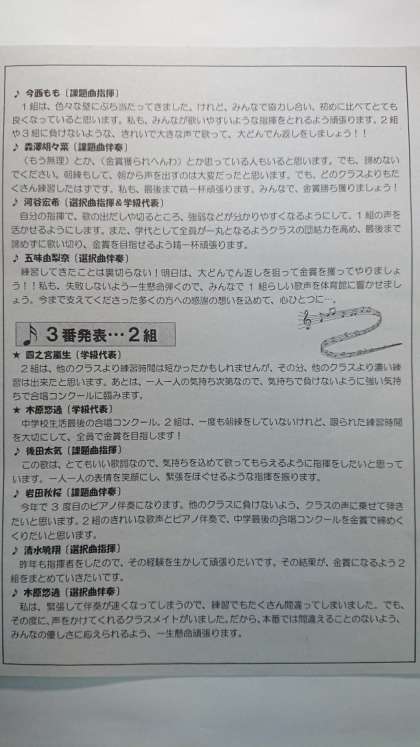 ♪ 今西もも〔課題曲指揮〕
1組は、色々な壁にぶち当たってきました。けれど、みんなで協力し合い、初めに比べてとても
良くなっていると思います。私も、みんなが歌いやすいような指揮をとれるよう頑張ります。2組
や3組に負けないような、きれいで大きな声で歌って、大どんでん返しをしましょう！！
♪ 森澤胡々菜〔課題曲伴奏〕
（もう無理）とか、（金賞獲られへんわ）とか思っている人もいると思います。でも、諦めない
でください。朝練もして、朝から声を出すのは大変だったと思います。でも、どのクラスよりもた
くさん練習したはずです。私も、最後まで精一杯頑張ります。みんなで、金賞勝ち獲りましょう！
♪ 河谷宏希〔選択曲指揮＆学級代表〕
自分の指揮で、歌の出だしや切るところ、強弱などが分かりやすくなるようにして、1組の声を
活かせるようにします。また、学代として全員が一丸となるようクラスの団結力を高め、最後まで
諦めずに歌い切り、金賞を目指せるよう精一杯頑張ります。
♪ 五味由梨奈〔選択曲伴奏〕
練習してきたことは裏切らない！明日は、大どんでん返しを狙って金賞を獲ってやりましょ
う！！私も、失敗しないよう一生懸命弾くので、みんなで1組らしい歌声を体育館に響かせまし
ょう。今まで支えてくださった多くの方への感謝の想いを込めて、心ひとつに…。
♪ 3番発表…2組
★ 四之宮嵐生〔学級代表〕
2組は、他のクラスより練習時間は短かったかもしれませんが、その分、他のクラスより濃い練
習は出来たと思います。あとは、一人一人の気持ち次第なので、気持ちで負けないように強い気持
ちで合唱コンクールに臨みます。
★ 木原悠過〔学級代表〕
中学校生活最後の合唱コンクール。2組は、一度も朝練をしていないけれど、限られた練習時間
を大切にして、全員で金賞を目指します！
♪ 後田太気〔課題曲指揮〕
この歌は、とてもいい歌詞なので、気持ちを込めて歌ってもらえるように指揮をしたいと思って
います。一人一人の表情を笑顔にし、緊張をほぐせるような指揮を振ります。
♪ 岩田秋桜〔課題曲伴奏〕
今年で3度目のピアノ伴奏になります。他のクラスに負けないよう、クラスの声に乗せて弾き
たいと思います。2組のきれいな歌声とピアノ伴奏で、中学最後の合唱コンクールを金賞で締めく
くりたいと思います。
♪ 清水暁翔〔選択曲指揮〕
昨年も指揮者をしたので、その経験を生かして頑張りたいです。その結果が、金賞になるよう2
組をまとめていきたいです。
♪ 木原悠過〔選択曲伴奏〕
私は、緊張して伴奏が速くなってしまうので、練習でもたくさん間違ってしまいました。でも、
その度に、声をかけてくれるクラスメイトがいました。だから、本番では間違えることのないよう、
みんなの優しさに応えられるよう、一生懸命頑張ります。